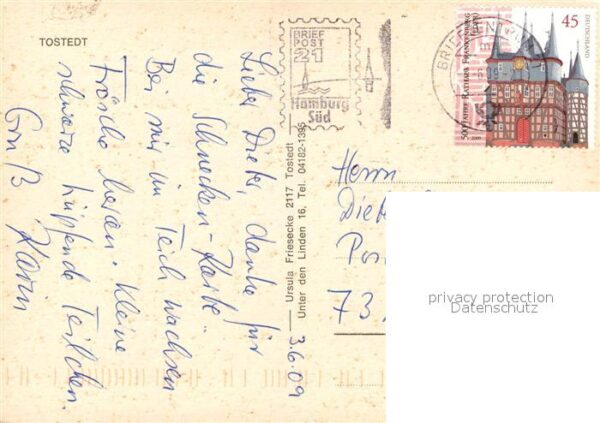 TOSTEDT
Liebe Dieter, danke für
die Schnecken-Karte.
Bei mir im Teich wachsen
Frösche heran. Kleine
schwarze hüpfende Teilchen.
Gruß Karin
3.6.09
Ursula Friesecke 2117 Tostedt
Unter den Linden 16, Tel. 04182-1395
BRIEF
POST
21
Hamburg
Süd
BRIEFZENTRUM
500 JAHRE RATHAUS FRANKENBERG (EDER)
DEUTSCHLAND
45
2009
Herrn
Diet
Pos
73
privacy protection
Datenschutz